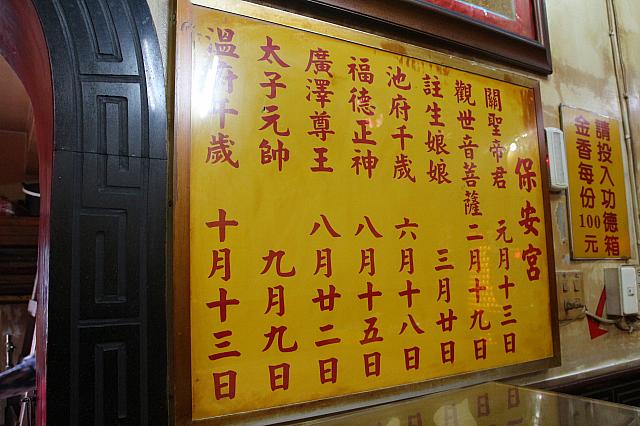 保安宮
關聖帝君 元月十三日
觀世音菩薩 二月十九日
註生娘娘 三月廿日
池府千歲 六月十八日
福德正神 八月十五日
廣澤尊王 八月廿二日
太子元帥 九月九日
溫府千歲 十月十三日
請投入功德箱
金香每份100元